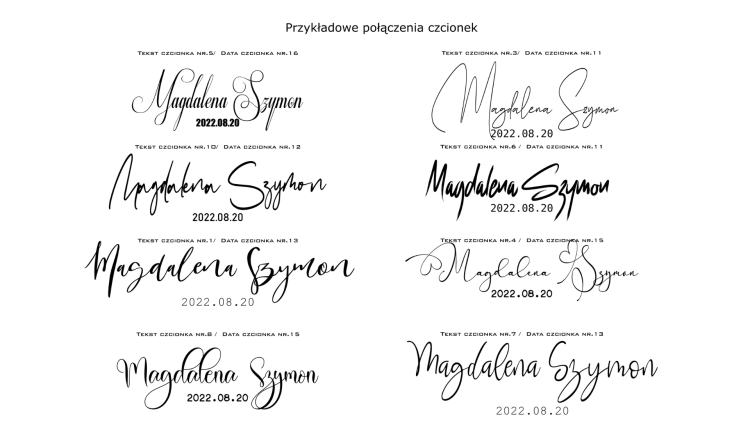 Przykładowe połączenia czcionek
Tekst czcionka nr.5/ Data czcionka nr.16
Magdalena Szymon
2022.08.20
Tekst czcionka nr.3/ Data czcionka nr.11
Magdalena Szymon
2022.08.20
Tekst czcionka nr.10/ Data czcionka nr.12
Magdalena Szymon
2022.08.20
Tekst czcionka nr.6 / Data czcionka nr.11
Magdalena Szymon
2022.08.20
Tekst czcionka nr.1/ Data czcionka nr.13
Magdalena Szymon
2022.08.20
Tekst czcionka nr.4 / Data czcionka nr.15
Magdalena Szymon
2022.08.20
Tekst czcionka nr.8/ Data czcionka nr.15
Magdalena Szymon
2022.08.20
Tekst czcionka nr.7/ Data czcionka nr.13
Magdalena Szymon
2022.08.20